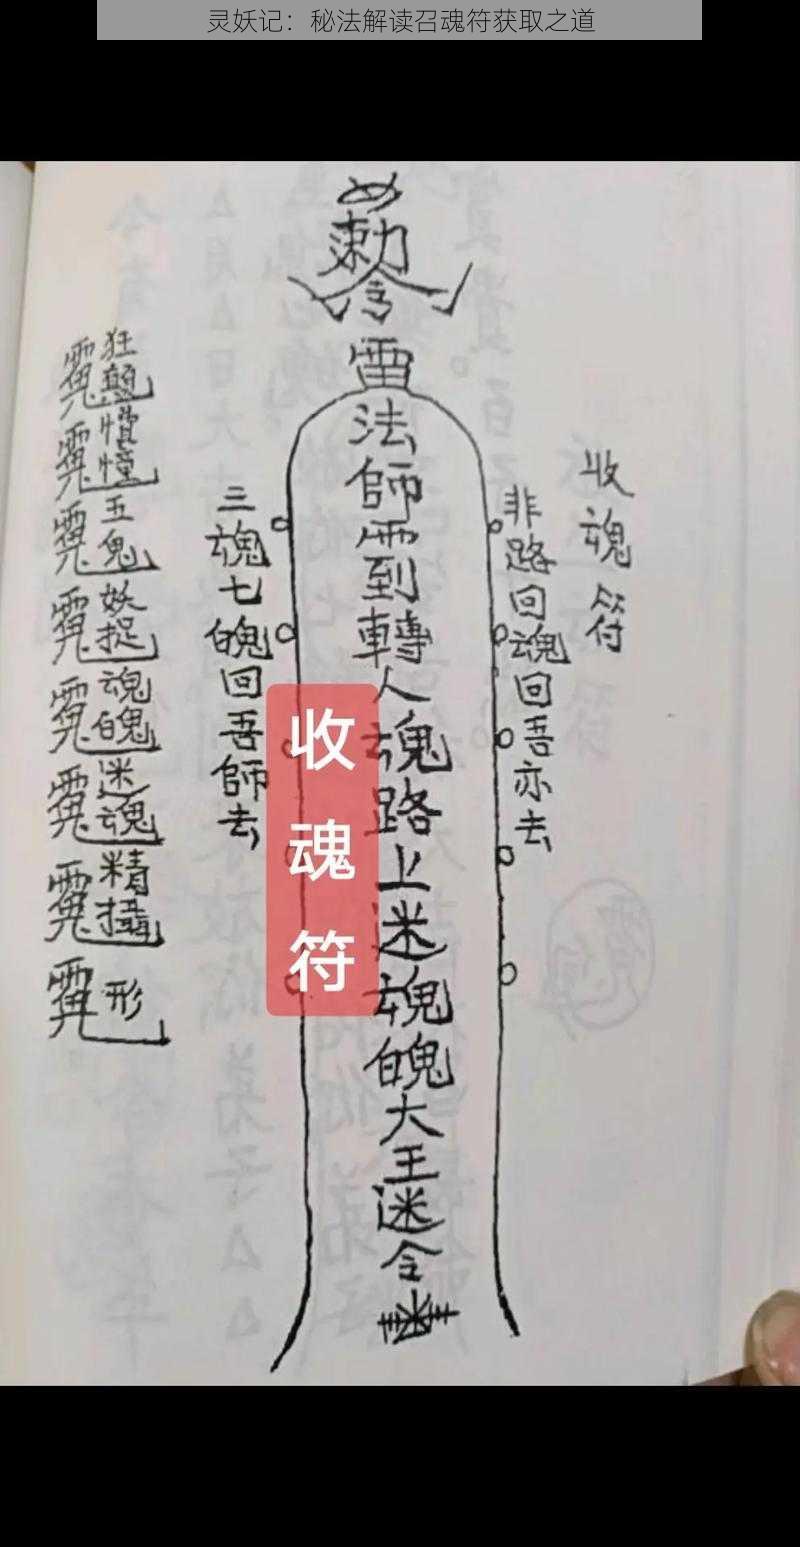 灵妖记：秘法解读召魂符获取之道
敕令
雷
法師雷到轉人魂路上迷魂魄大王迷令
收魂符
非路回魂回吾亦去
三魂七魄回吾師去
收魂符
狂顛
憒憧
五鬼
妖捉
魂魄
迷魂
精攝
形